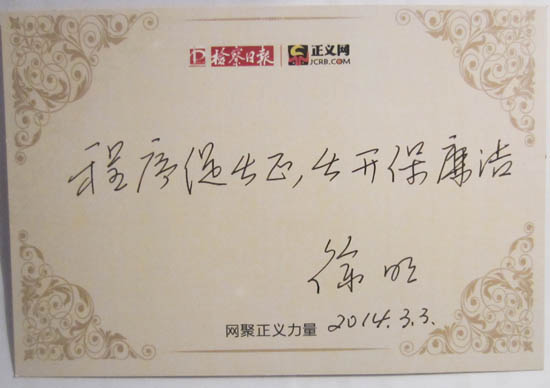 检察日报 正义网
JCRB.COM
程序促公正,公开保廉洁
徐明
网聚正义力量 2014.3.3.